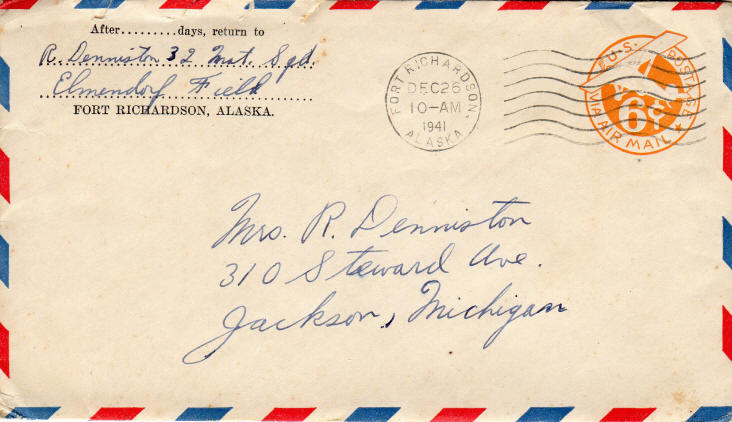 After.........days, return to
R. Denniston 32 Mat. Sqd.
Elmendorf Field
FORT RICHARDSON, ALASKA.
FORT RICHARDSON,
DEC 26
10-AM
1941
ALASKA
U.S. POSTAGE
6¢
VIA AIR MAIL
Mrs. R. Denniston
310 Steward Ave.
Jackson, Michigan